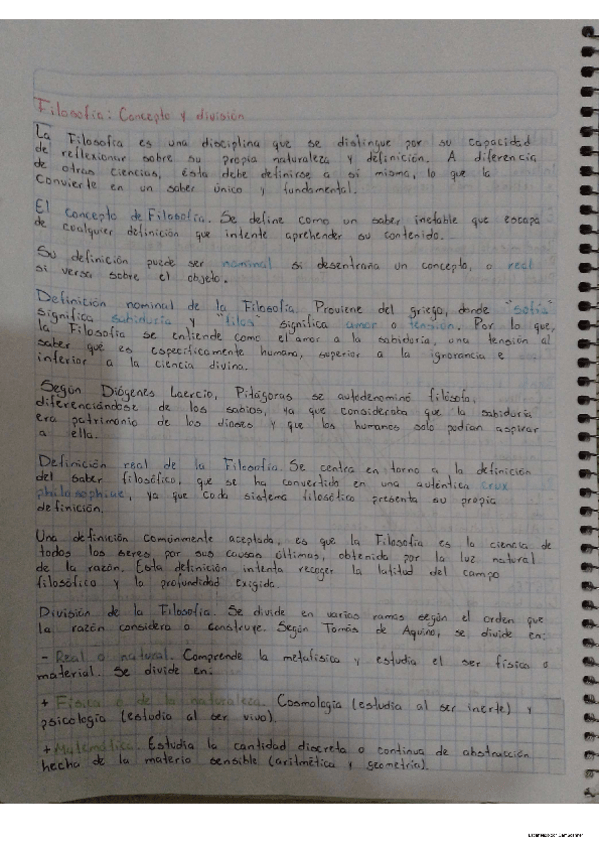 Filosofía: Concepto y división
La Filosofía es una disciplina que se distingue por su capacidad
de reflexionar sobre su propia naturaleza y definición. A diferencia
de otras ciencias, ésta debe definirse a si misma, lo que la
convierte en un saber único y fundamental.
El concepto de Filosofía. Se define como un saber inefable que escapa
de cualquier definición que intente aprehender su contenido.
Su definición puede ser nominal si desentraña un concepto, o real
si versa sobre el objeto.
Definición nominal de la Filosofía. Proviene del griego, donde "sofia"
significa sabiduría y "filos" significa amor o tensión. Por lo que,
la Filosofía se entiende como el amor a la sabiduría, una tensión al
saber que es específicamente humana, superior a la ignorancia e
inferior a la ciencia divina.
Según Diógenes Laercio, Pitágoras se autodenominó filósofo,
diferenciándose de los sabios, ya que consideraba que la sabiduría
era patrimonio de los dioses y que los humanos solo podían aspirar
a ella.
Definición real de la Filosofía. Se centra en torno a la definición
del saber filosófico, que se ha convertido en una auténtica crux
philosophiae, ya que cada sistema filosófico presenta su propia
definición.
Una definición comúnmente aceptada, es que la Filosofía es la ciencia de
todos los seres por sus causas últimas, obtenida por la luz natural
de la razón. Esta definición intenta recoger la latitud del campo
filosófico y la profundidad exigida.
División de la Filosofía. Se divide en varias ramas según el orden que
la razón considera o construye. Según Tomás de Aquino, se divide en:
- Real o natural. Comprende la metafísica y estudia el ser físico o
material. Se divide en:
+ Física o de la naturaleza. Cosmología (estudia al ser inerte) y
psicología (estudia al ser vivo).
+ Matemática. Estudia la cantidad discreta o continua de abstracción
hecha de la materia sensible (aritmética y geometría).